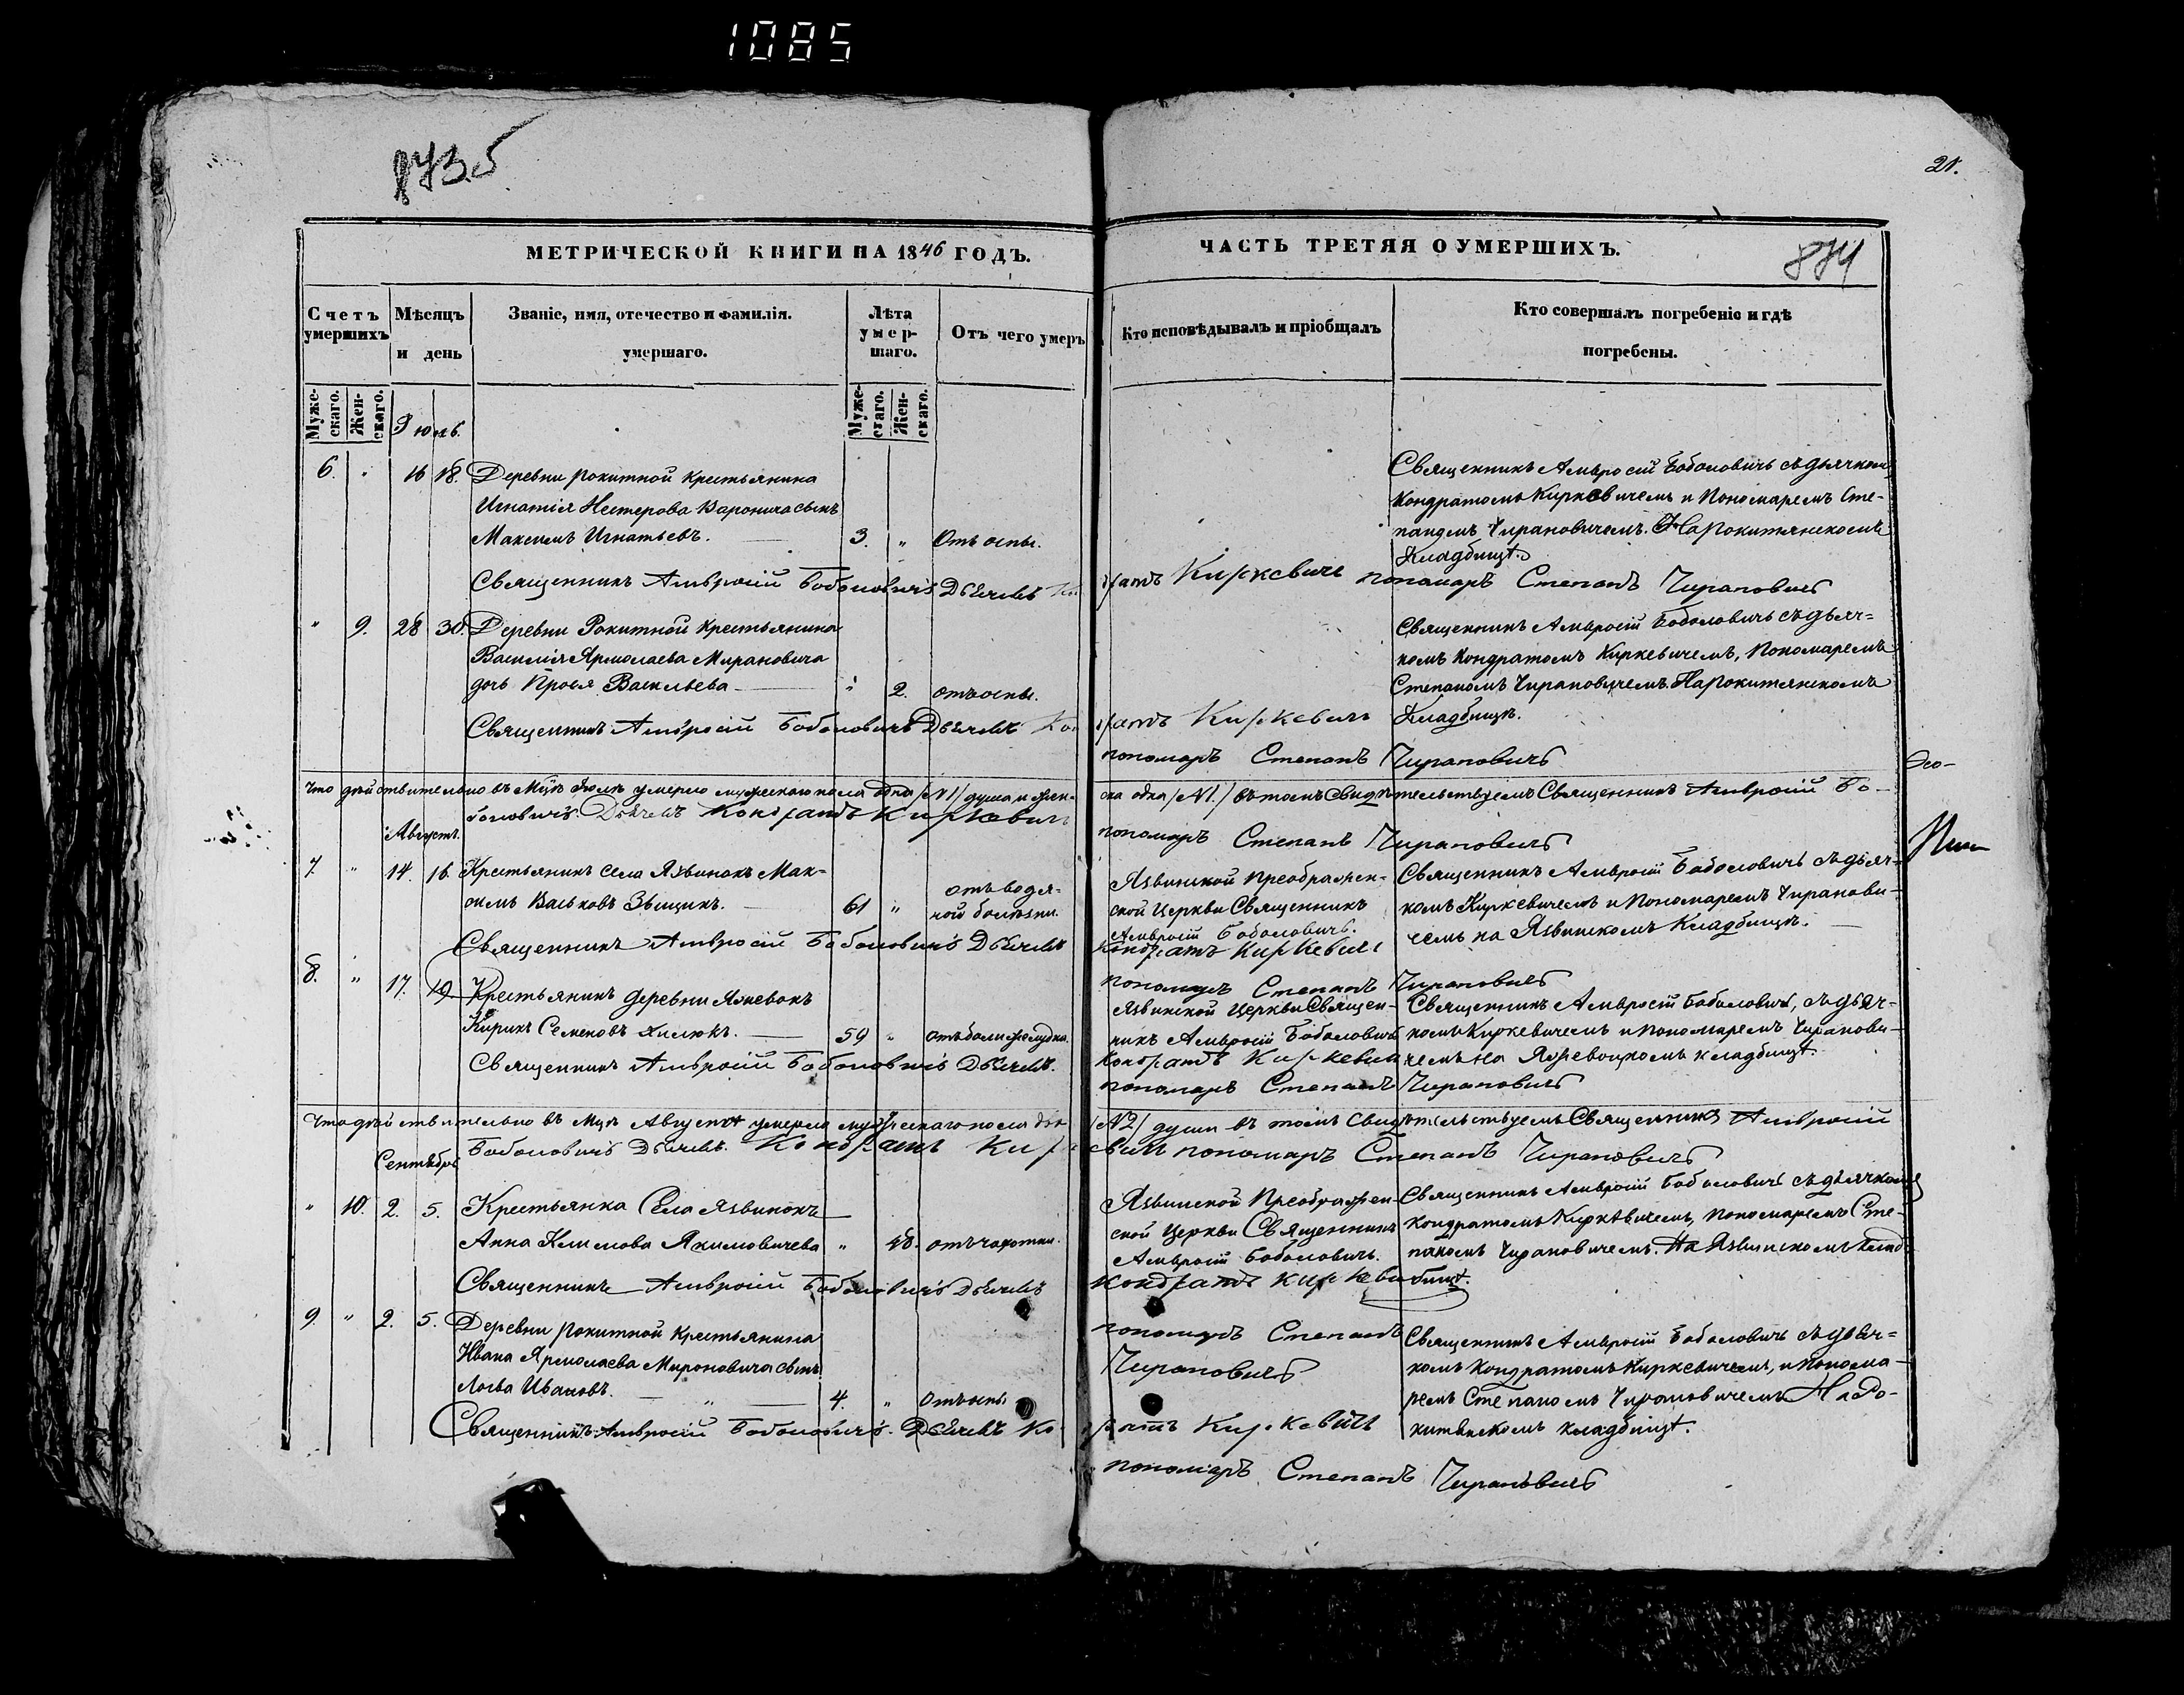 1085
873б
21.
МЕТРИЧЕСКОЙ КНИГИ НА 1846 ГОДЪ.
ЧАСТЬ ТРЕТЯЯ О УМЕРШИХЪ.
874
Счетъ умершихъ
Мѣсяцъ и день
Званіе, имя, отечество и фамилія. умершаго.
Лѣта умер-шаго.
Отъ чего умеръ
Кто исповѣдывалъ и пріобщалъ
Кто совершалъ погребеніе и гдѣ погребены.
Муже-скаго.
Жен-скаго.
Муже-скаго.
Жен-скаго.
Іюль.
6. " 16 18. Деревни Рокитной крестьянина
Игнатія Нестерова Варонича сынъ
Максимъ Игнатьевъ. 3. " Отъ оспы.
Священникъ Амвросій Боболовичь съ дьячкомъ
Кондратомъ Киркевичемъ и Пономаремъ Сте-
паномъ Чирановичемъ. На Рокитянскомъ
Кладбищѣ.
Священникъ Амвросій Боболовичъ Дьячекъ
Киркевичь пономаръ Степанъ Чирановичъ
" 9. 28 30. Деревни Рокитной крестьянина
Василія Ярмолаева Мирановича
дочь Васильева " 2. отъ оспы.
Священникъ Амвросій Боболовичь съ дьяч=
комъ Кондратомъ Киркевичемъ, Пономаремъ
Степаномъ Чирановичемъ. На Рокитянскомъ
Кладбищѣ.
Священникъ Амвросій Боболовичъ Дьячекъ
Киркевичь
пономаръ Степанъ Чирановичъ
Что дѣйствительно въ Іюлѣ умерло мужескаго пола одна /№1/ душа и жен-
ска одна /№1./ въ томъ свидѣтельствуемъ Священникъ Амвросій Бо-
боловичъ. Дьячекъ Кондратъ Киркевичь
пономаръ Степанъ Чирановичъ
Августъ.
7. " 14. 16. Крестьянинъ села Язвинокъ Мак-
симъ Васьковъ 61 " отъ водя-
ной болѣзни.
Язвинской Преображен-
ской Церкви Священникъ
Амвросій Боболовичь.
Священникъ Амвросій Боболовичь съ дьяч=
комъ Киркевичемъ и Пономаремъ Чиранови-
чемъ на Язвинскомъ Кладбищѣ.
Священникъ Амвросій Боболовичъ Дьячекъ
Кондратъ Киркевичь
пономаръ Степанъ Чирановичъ
8. " 17. 19. Крестьянинъ деревни Яжевокъ
Семеновъ 59 " отъ боли желудка.
Язвинской Церкви Священ-
никъ Амвросій Боболовичь
Священникъ Амвросій Боболовичь, съ дьяч-
комъ Киркевичемъ и Пономаремъ Чиранови-
чемъ на кладбищѣ.
Священникъ Амвросій Боболовичъ Дьячекъ.
Кондратъ Киркевичь
пономаръ Степанъ Чирановичъ
Что дѣйствительно въ Августѣ умерло мужескаго пола двѣ
/№2/ души въ томъ свидѣтельствуемъ Священникъ Амвросій
Боболовичъ Дьячекъ. Кондратъ Киркевичь пономаръ Степанъ Чирановичъ
Сентябрь
" 10. 2. 5. Крестьянка Села Язвинокъ
Анна Климова Якимовичева " отъ чахотки.
Язвинской Преображен-
ской Церкви Священникъ
Амвросій Боболовичь.
Священникъ Амвросій Боболовичь съ дьячкомъ
Кондратомъ Киркевичемъ, Пономаремъ Сте-
паномъ Чирановичемъ. На Язвинскомъ Клад-
бищѣ.
Священникъ Амвросій Боболовичъ Дьячекъ
Кондратъ Киркевичь
пономаръ Степанъ
Чирановичъ
9. " 2. 5. Деревни Рокитной крестьянина
Ивана Ярмолаева Мироновича сынъ
Ивановъ. 4. " Отъ оспы
Священникъ Амвросій Боболовичь съ дьяч=
комъ Кондратомъ Киркевичемъ, и Понома-
ремъ Степаномъ Чирановичемъ. На Ро-
китянскомъ кладбищѣ.
Священникъ Амвросій Боболовичъ. Дьячекъ
Киркевичь
пономаръ Степанъ Чирановичъ